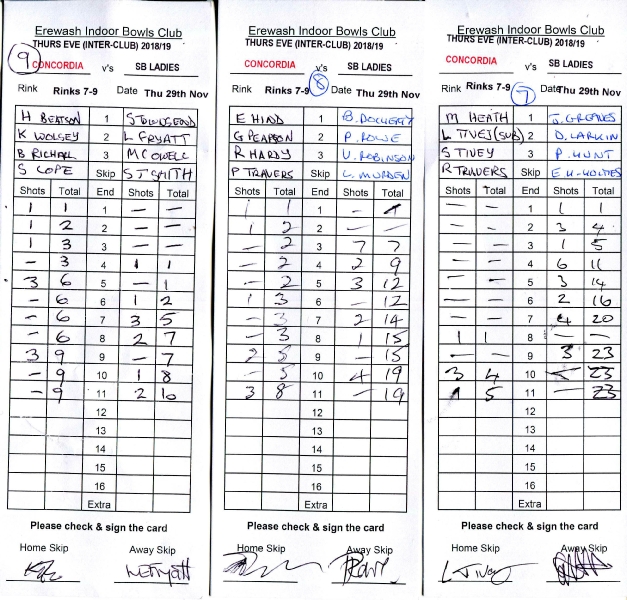 Erewash Indoor Bowls Club
THURS EVE (INTER-CLUB) 2018/19
9
CONCORDIA v's SB LADIES
Rink Rinks 7-9 Date Thu 29th Nov
H BEATSON 1 S TOWNSEND
K WOLSEY 2 L FRYATT
B RICHALL 3 M COWELL
S COPE Skip S T SMITH
Shots Total End Shots Total
1 1 1 — —
1 2 2 — —
1 3 3 — —
- 3 4 1 1
3 6 5 — 1
- 6 6 1 2
- 6 7 3 5
- 6 8 2 7
3 9 9 — 7
- 9 10 1 8
- 9 11 2 10
12
13
14
15
16
Extra
Please check & sign the card
Home Skip Away Skip
Erewash Indoor Bowls Club
THURS EVE (INTER-CLUB) 2018/19
CONCORDIA v's SB LADIES
8
Rink Rinks 7-9 Date Thu 29th Nov
E HIND 1 B. DOCHERTY
G PEARSON 2 P. ROWE
R HARDY 3 V. ROBINSON
P TRAVERS Skip L. MURDEN
Shots Total End Shots Total
1 1 1 —
1 2 2 — —
- 2 3 7 7
- 2 4 2 9
- 2 5 3 12
1 3 6 — 12
- 3 7 2 14
- 3 8 1 15
2 5 9 — 15
- 5 10 4 19
3 8 11 — 19
12
13
14
15
16
Extra
Please check & sign the card
Home Skip Away Skip
Erewash Indoor Bowls Club
THURS EVE (INTER-CLUB) 2018/19
CONCORDIA v's SB LADIES
7
Rink Rinks 7-9 Date Thu 29th Nov
M HEATH 1 J. GREAVES
L TIVEY (SUB) 2 D. LARKIN
S TIVEY 3 P. HUNT
R TRAVERS Skip
Shots Total End Shots Total
— — 1 1 1
— — 2 3 4
— — 3 1 5
— — 4 6 11
- - 5 3 14
— — 6 2 16
— — 7 4 20
1 1 8 — —
— — 9 3 23
3 4 10 23
1 5 11 — 23
12
13
14
15
16
Extra
Please check & sign the card
Home Skip Away Skip
L Tivey